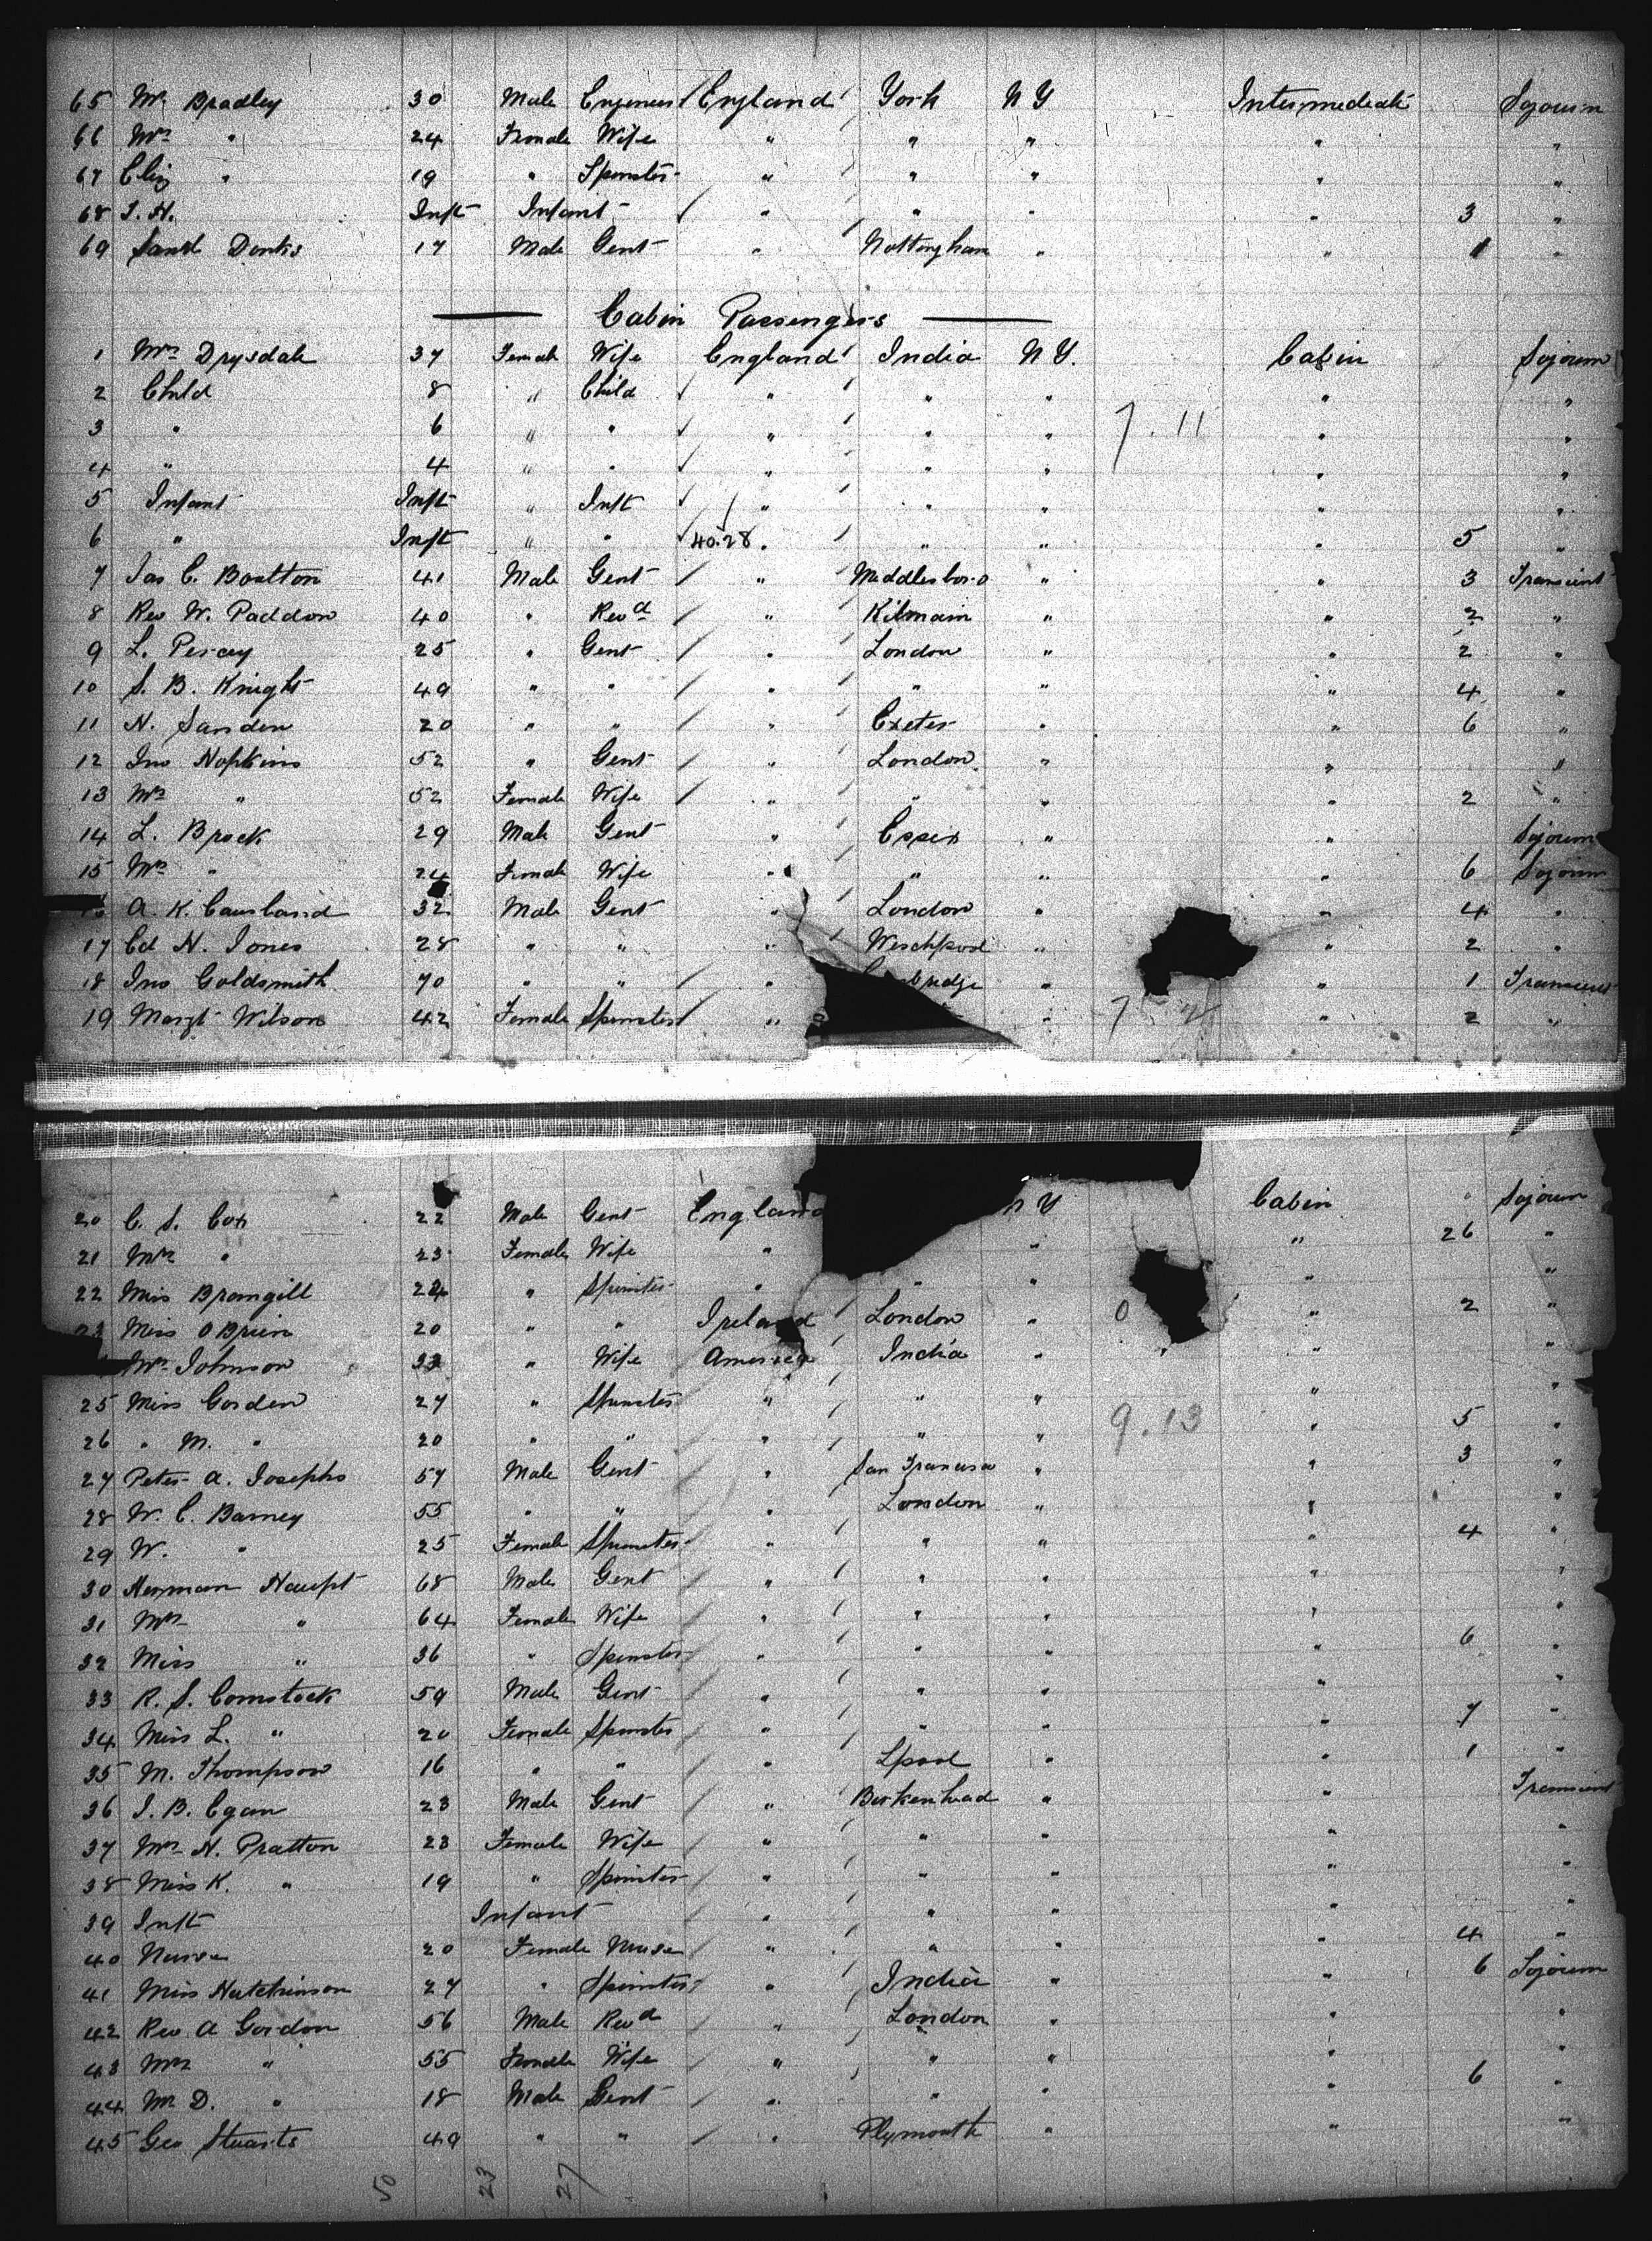 65 Mr Bradley 30 Male Engineer England York N Y Intermediate Sojourn
66 Mrs " 24 Female Wife " " " " "
67 Eliz " 19 " Spinster " " " " "
68 J. H. Inft Infant " " " " 3 "
69 Saml Donks 17 Male Gent " Nottingham " " 1 "
Cabin Passengers
1 Mrs Drysdale 37 Female Wife England India N Y. Cabin Sojourn
2 Child 8 " Child " " " " "
3 " 6 " " " " " 7.11 " "
4 " 4 " " " " " " "
5 Infant Inft " Inft " " " " "
6 " Inft " " 40.28 " " " " 5 "
7 Jas C. Boulton 41 Male Gent " Middlesboro " " 3 Transient
8 Rev W. Paddon 40 " Revd " Kilmain " " 2 "
9 L. Percy 25 " Gent " London " " 2 "
10 S. B. Knight 49 " " " " " " 4 "
11 N. Sanden 20 " " " Exeter " " 6 "
12 Jno Hopkins 52 " Gent " London " " "
13 Mrs " 52 Female Wife " " " " 2 "
14 L. Brock 29 Male Gent " Essex " " Sojourn
15 Mrs " 24 Female Wife " " " " 6 Sojourn
A. K. Causland 32 Male Gent " London " " 4 "
17 Ed H. Jones 28 " " " " " 2 "
18 Jno Goldsmith 70 " " " bridge " " 1 Transient
19 Margt Wilson 42 Female Spinster " " 7 " 2 "
20 C. S. Cox 22 Male Gent England N Y Cabin Sojourn
21 Mrs " 23 Female Wife " " " 26 "
22 Miss Bramgill 24 " Spinster " " " " "
23 Miss OBrien 20 " " Ireland London " 0 " 2 "
Mrs Johnson 33 " Wife America India " " "
25 Miss Gorden 27 " Spinster " " " " "
26 " M. " 20 " " " " " 9.13 " 5 "
27 Peter A. Josephs 57 Male Gent " San Francisco " " 3 "
28 W. C. Barney 55 " " " London " " "
29 W. " 25 Female Spinster " " " " 4 "
30 Herman Haupt 68 Male Gent " " " " "
31 Mrs " 64 Female Wife " " " " "
32 Miss " 36 " Spinster " " " " 6 "
33 R. S. Comstock 59 Male Gent " " " " "
34 Miss L. " 20 Female Spinster " " " " 7 "
35 M. Thompson 16 " " " Lpool " " 1 "
36 J. B. Egan 23 Male Gent " Birkenhead " " Transient
37 Mrs H. Pratton 23 Female Wife " " " " "
38 Miss K. " 19 " Spinster " " " " "
39 Inft Infant " " " " "
40 Nurse 20 Female Nurse " " " " 4 "
41 Miss Hutchinson 27 " Spinster " India " " 6 Sojourn
42 Rev A Gordon 56 Male Revd " London " " "
43 Mrs " 55 Female Wife " " " " "
44 Mr D. " 18 Male Gent " " " " 6 "
45 Geo Stuarts 49 " " " Plymouth " " "
50 23 27